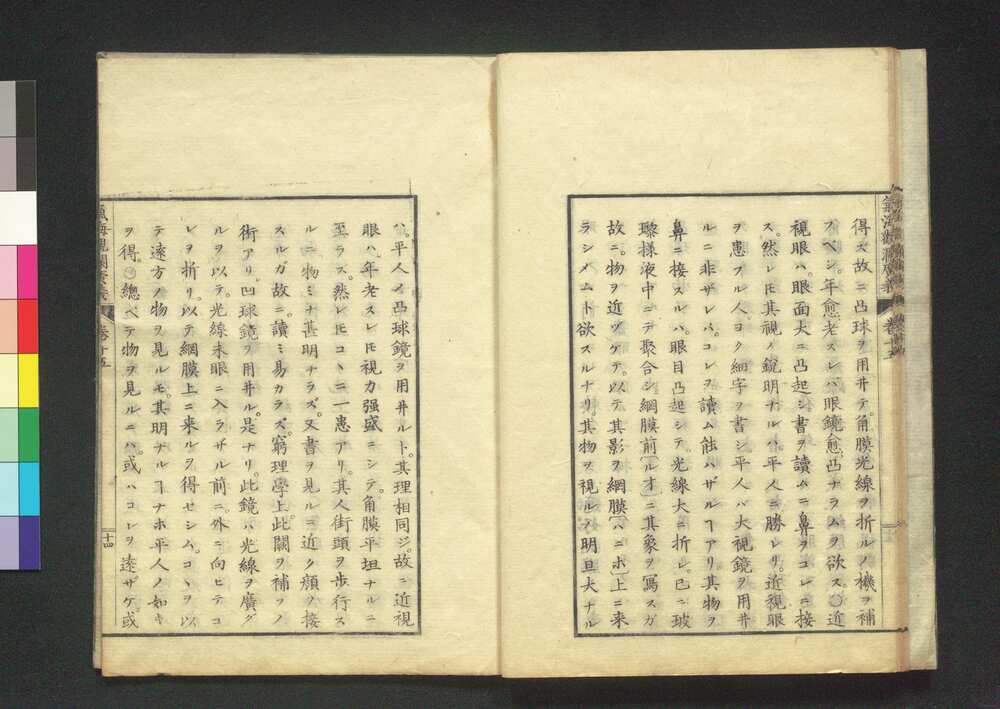 得ズ故ニ凸球ヲ用井テ。角膜光線ヲ折ルノ機ヲ補
フベシ。年愈老スレバ。眼鏡愈凸ナラムヲ欲ス。〇近
視眼ハ。眼面大ニ凸起シ。書ヲ讀ムニ鼻ヲコレニ接
ス。然レ𪜈其視ノ鏡明ナルハ。平人ニ勝レリ。近視眼
ヲ患フル人。ヨク細字ヲ書シ。平人ハ大視鏡ヲ用井
ルニ非ザレバ。コレヲ讀ム能ハザルヿアリ。其物ヲ
鼻ニ接スルハ。眼目凸起シテ。光線大ニ折レ。已ニ玻
瓈様液中ニテ聚合シ。綱膜前〔ルオ〕ニ其象ヲ寫スガ
故ニ。物ヲ近ヅケテ。以テ其影ヲ綱膜〔ハニホ〕上ニ来
ラシメムト欲スルナリ。其物ヲ視ルヿ明且大ナル
氣海觀瀾廣義 卷十五
ハ。平人ノ凸球鏡ヲ用井ルト。其理相同ジ。故ニ近視
眼ハ。年老スレ𪜈視力强盛ニシテ。角膜平坦ナルニ
至ラズ。然レ𪜈コヽニ一患アリ。其人街頭ヲ歩行ス
ルニ物ミナ甚明ナラズ。又書ヲ見ルニ近ク顔ヲ接
スルガ故ニ。讀ミ易カラズ。窮理學上此闕ヲ補フノ
術アリ。凹球鏡ヲ用井ル。是ナリ。此鏡ハ光線ヲ廣グ
ルヲ以テ。光線未眼ニ入ラザル前ニ。外ニ向ヒテコ
レヲ折リ。以テ綱膜上ニ来ルヲ得セシム。コヽヲ以
テ遠方ノ物ヲ見ルモ。其明ナルヿナホ平人ノ如キ
ヲ得。〇總ベテ物ヲ見ルニハ。或ハコレヲ遠ザケ或
氣海觀瀾廣義 卷十五 十四